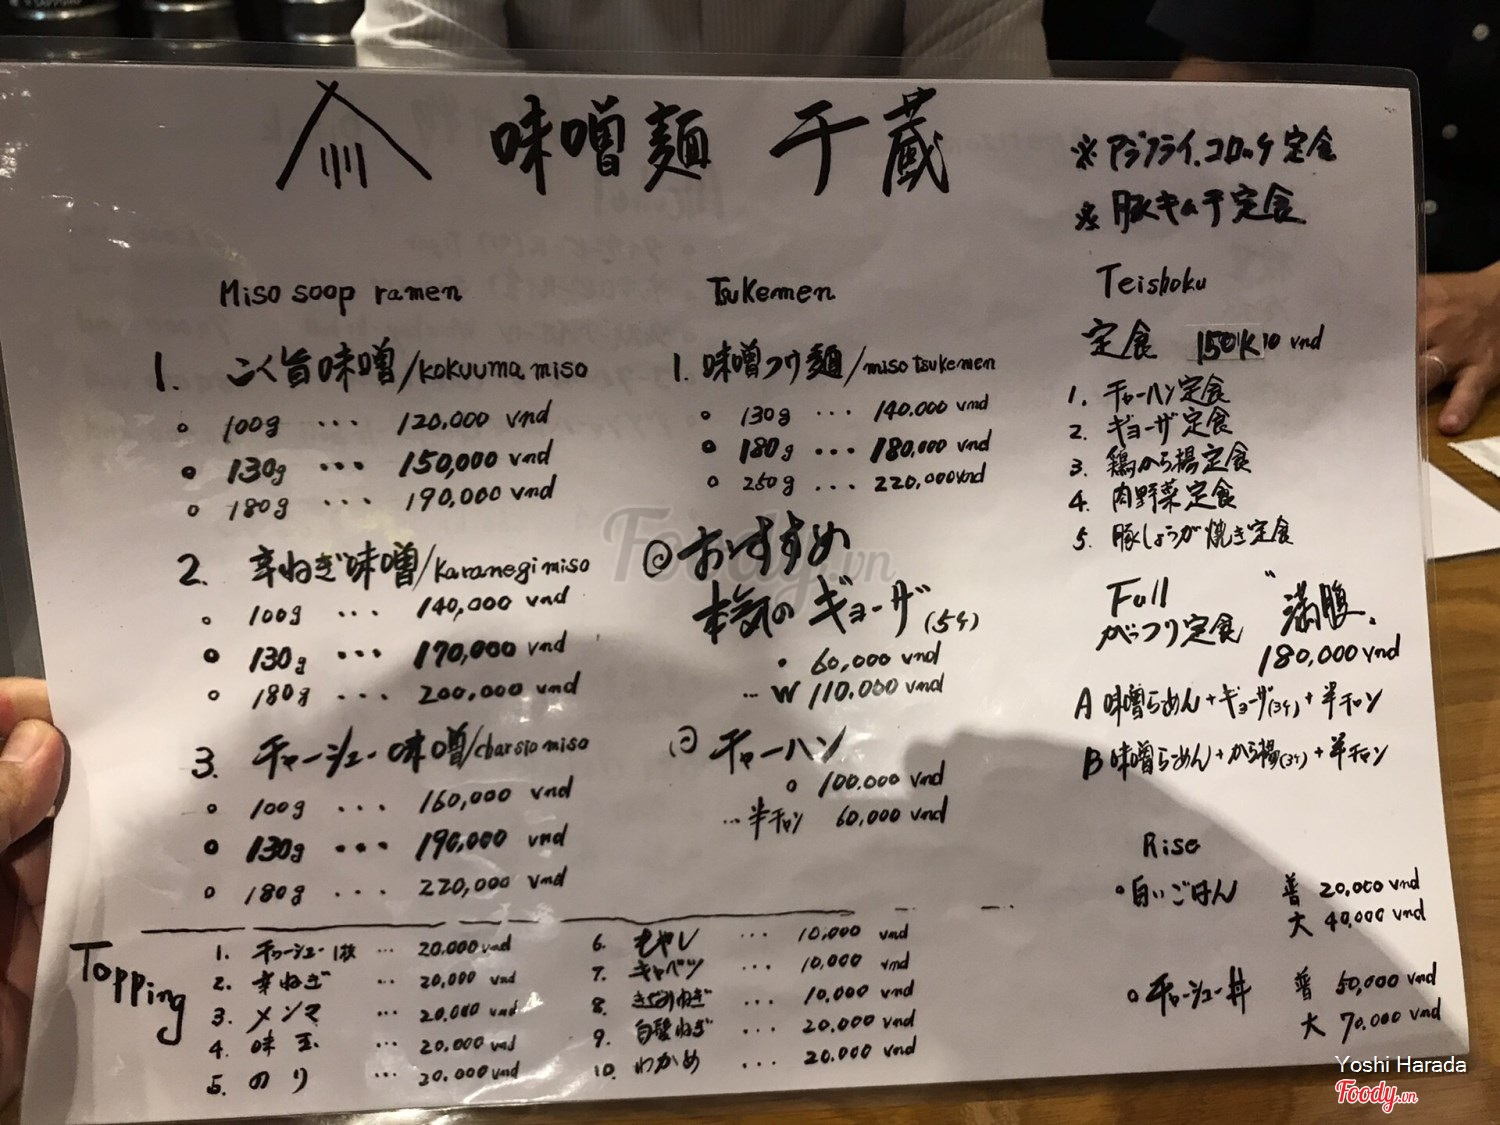 味噌麺 千蔵
※ アジフライ、コロッケ定食
※ 豚キムチ定食
Miso soop ramen
1. こく旨味噌/kokuuma miso
100g ... 120,000 vnd
130g ... 150,000 vnd
180g ... 190,000 vnd
2. 辛ねぎ味噌/karanegi miso
100g ... 140,000 vnd
130g ... 170,000 vnd
180g ... 200,000 vnd
3. チャーシュー味噌/charsio miso
100g ... 160,000 vnd
130g ... 190,000 vnd
180g ... 220,000 vnd
Tsukemen
1. 味噌つけ麺/miso tsukemen
130g ... 140.000 vnd
180g ... 180,000 vnd
250g ... 220,000vnd
◎おすすめ
本気の ギョーザ(5ケ)
60,000 vnd
... W 110.000 vnd
チャーハン
100.000 vnd
... 半チャン 60,000 vnd
Teishoku
定食 150K vnd
1. チャーハン定食
2. ギョーザ定食
3. 鶏から揚定食
4. 肉野菜定食
5. 豚しょうが焼き定食
Full "満腹"
がっつり定食
180,000 vnd
A 味噌らめん+ギョーザ(3ケ)+半チャン
B 味噌らめん+から揚(3ケ)+半チャン
Rise
白いごはん 普 20,000 vnd
大 40,000 vnd
チャーシュー丼 普 50,000 vnd
大 70.000 vnd
Topping
1. チャーシュー1枚 ... 20.000 vnd
2. 辛ねぎ ... 20,000 vnd
3. メンマ ... 20.000 vnd
4. 味玉 ... 20.000 vnd
5. のり ... 20.000 vnd
6. もやし ... 10,000 vnd
7. キャベツ ... 10,000 vnd
8. きざみねぎ ... 10,000 vnd
9. 白髪ねぎ ... 20.000 vnd
10. わかめ ... 20.000 vnd
Foody.vn
Yoshi Harada
Foody.vn